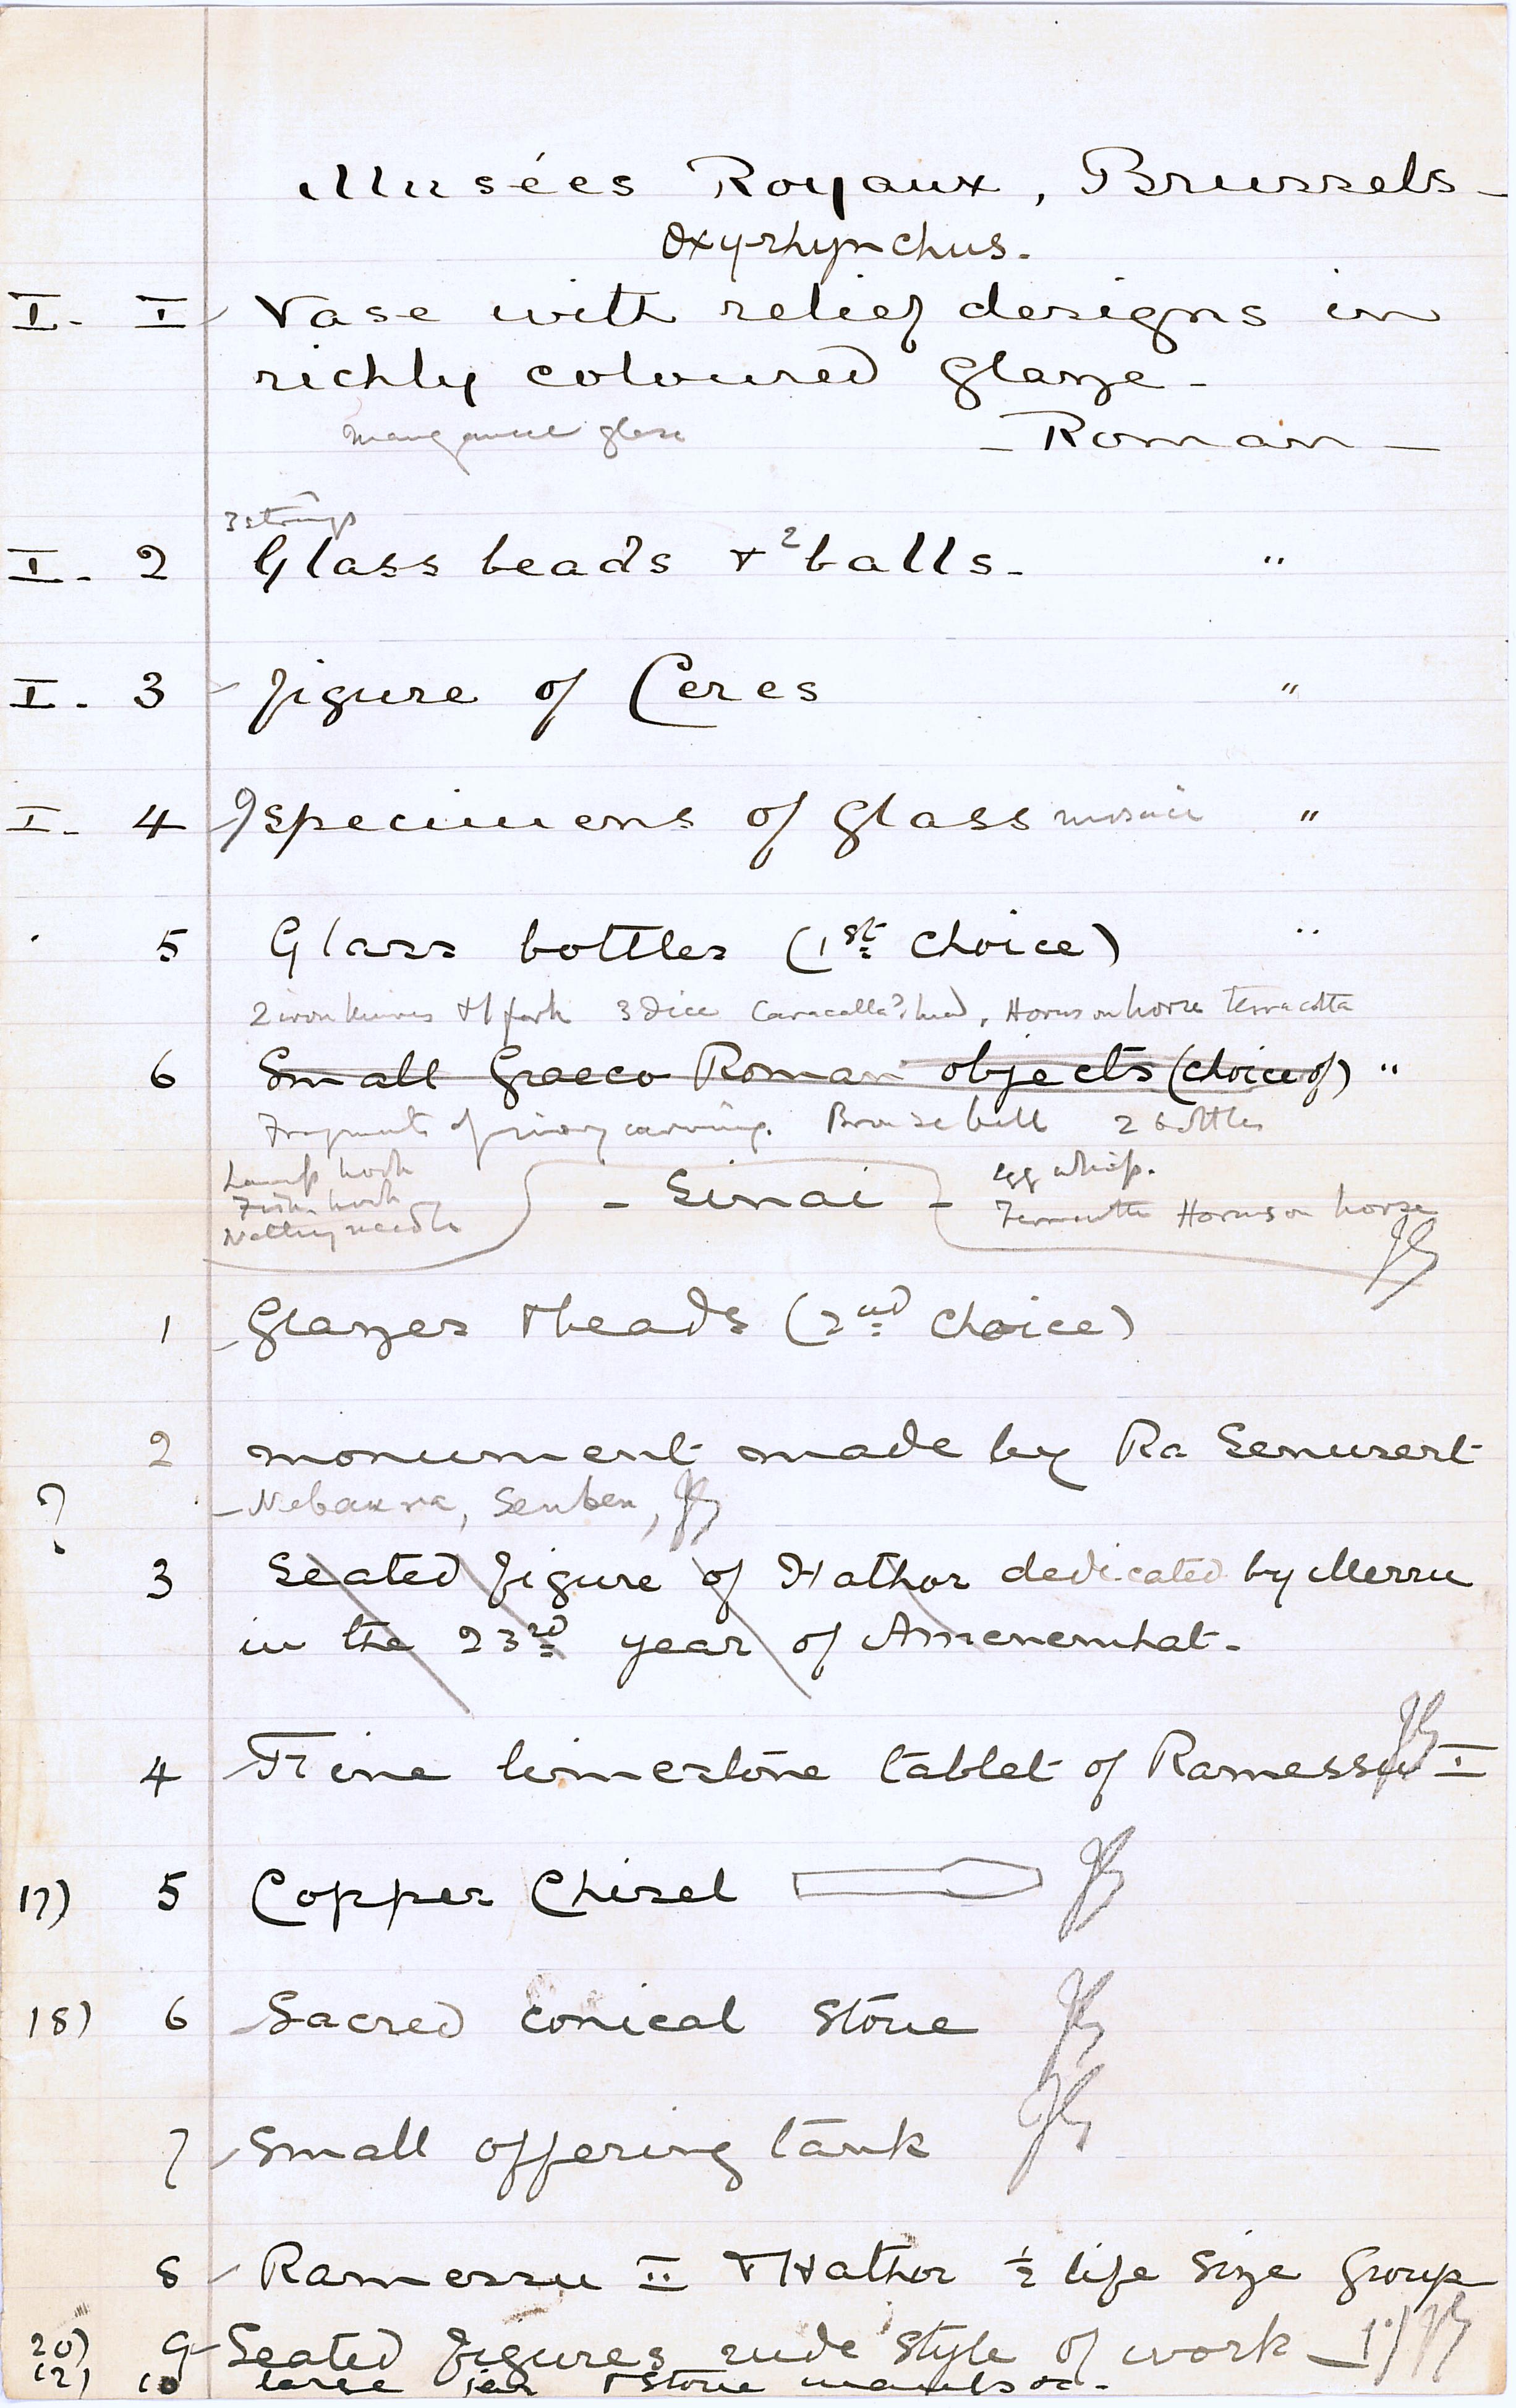 Musées Royaux, Brussels -
Oxyrhynchus.
I. I Vase with relief designs in
richly coloured glaze -
manganese glaze - Roman -
3 strings
I. 2 Glass beads + 2 balls - "
I. 3 figure of Ceres "
I. 4 9 specimens of glass mosaic "
5 Glass bottles (1st choice) "
2 iron knives + 1 fork 3 dice Caracalla? head, Horus on horse terracotta
6 Small Graeco Roman objects (choice of) "
Fragments of ivory carving. Bronze bell 2 bottles
Lamp hook
Fish hook
Netting needle
- Sinai -
egg whisp.
Terracotta Horus on horse
1 Glazes + beads (2nd choice)
2 monument made by Ra Senusert
? - Nebaura, Senben,
3 Seated figure of Hathor dedicated by Merru
in the 23rd year of Amenemhat -
4 Fine limestone tablet of Ramessu I
17) 5 Copper Chisel
18) 6 Sacred conical stone
7 Small offering tank
8 Ramessu II + Hathor ½ life size group
20) 9 Seated figures rude style of work -
(2) 10 large jar + stone